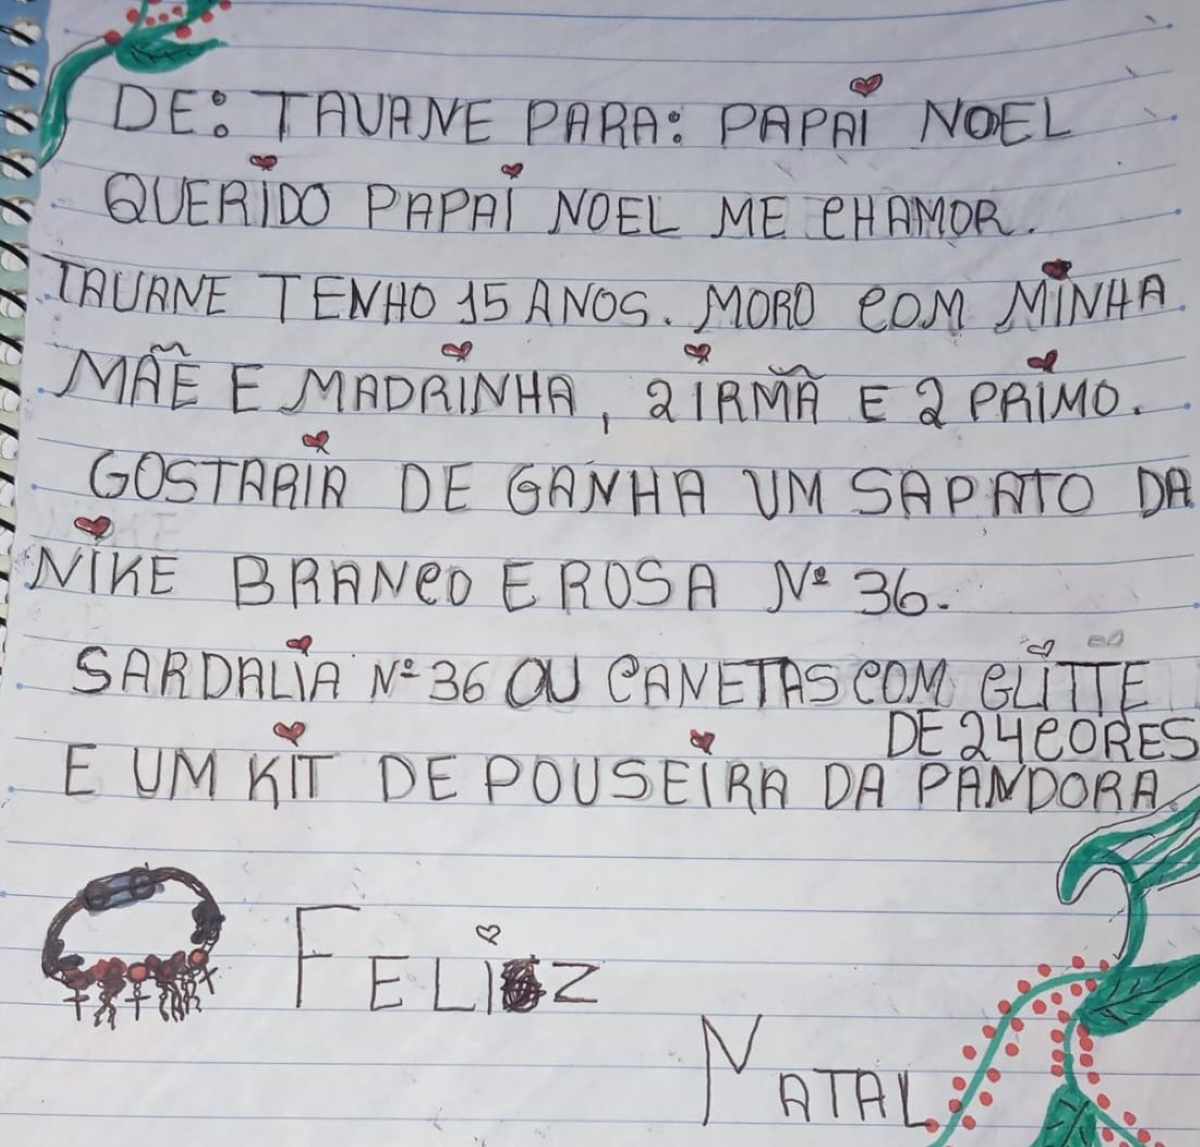 DE: TAUANE PARA: PAPAI NOEL
QUERIDO PAPAI NOEL ME CHAMOR.
TAUANE TENHO 15 ANOS. MORO COM MINHA
MÃE E MADRINHA, 2 IRMÃ E 2 PRIMO.
GOSTARIA DE GANHA UM SAPATO DA
NIKE BRANCO E ROSA Nº 36.
SARDALIA Nº 36 OU CANETAS COM GLITTE
DE 24 CORES
E UM KIT DE POUSEIRA DA PANDORA.
FELIZ
NATAL